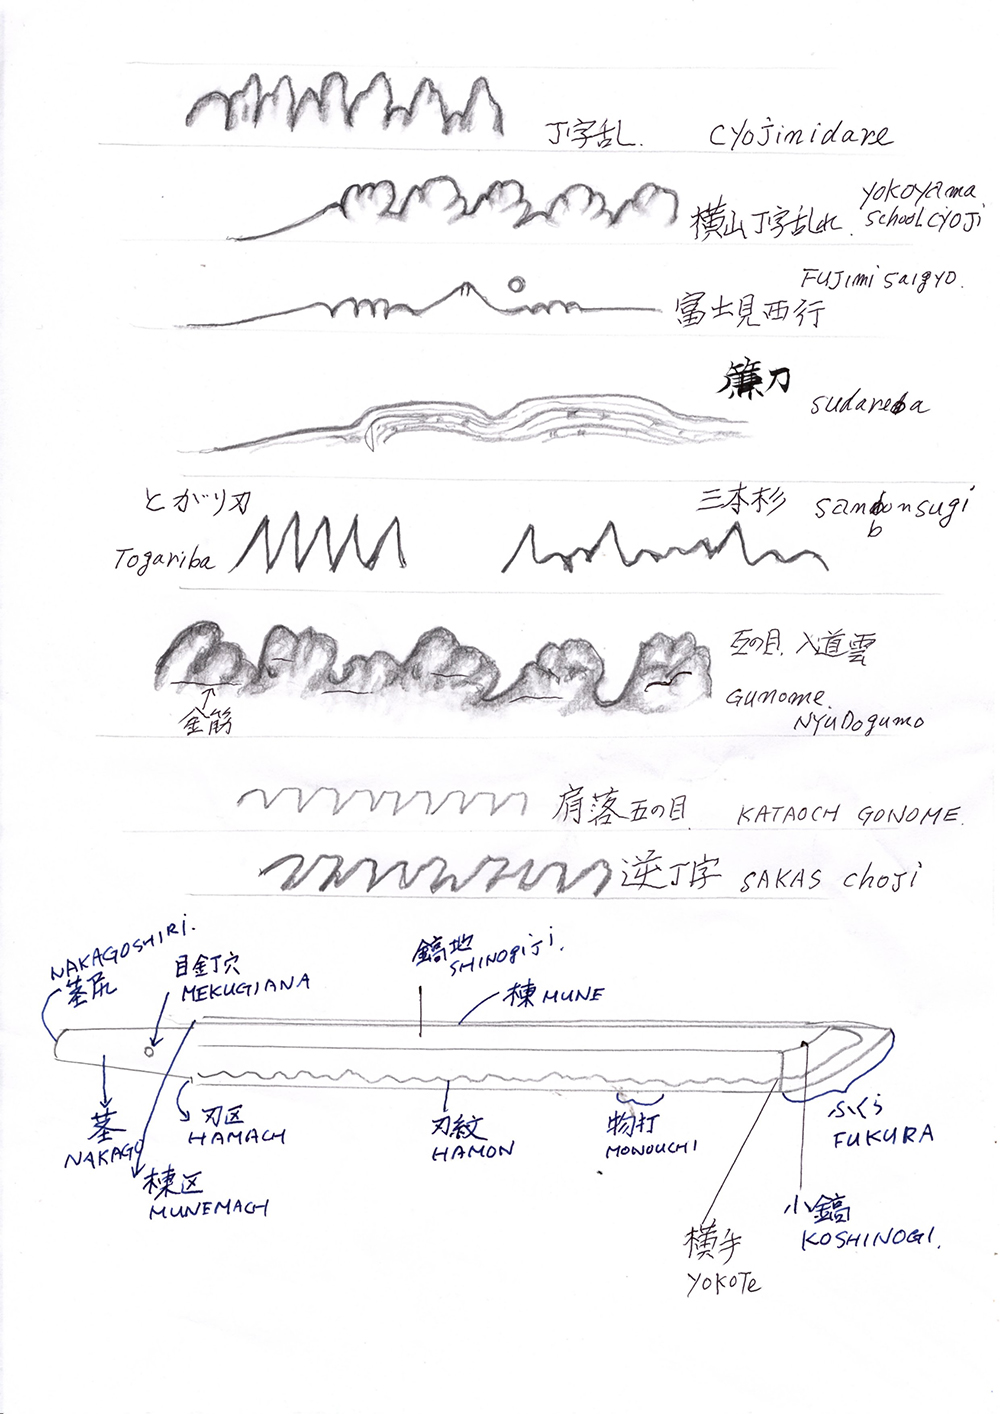 丁字乱. CYojimidare
横山丁字乱れ. YOKOYAMA
SCHOOL CIYOJI
FUJimi SAIGYO.
富士見西行
簾刀
sudareba
とがり刃
Togariba
三本杉 Sanbonsugi
b
互の目. 入道雲
GUNOME.
NYUDOgumo
金筋
肩落五の目 KATAOCH GONOME.
逆丁字 SAKAS choji
NAKAGOSHIRi.
茎尻
目釘穴
MEKUGIANA
鎬地
SHINOGIJi.
棟 MUNE
茎
NAKAGO
刃区
HAMACH
棟区
MUNEMACH
刃紋
HAMON
物打
MONOUCHI
ふくら
FUKURA
小鎬
KOSHINOGI.
横手
YOKOTe